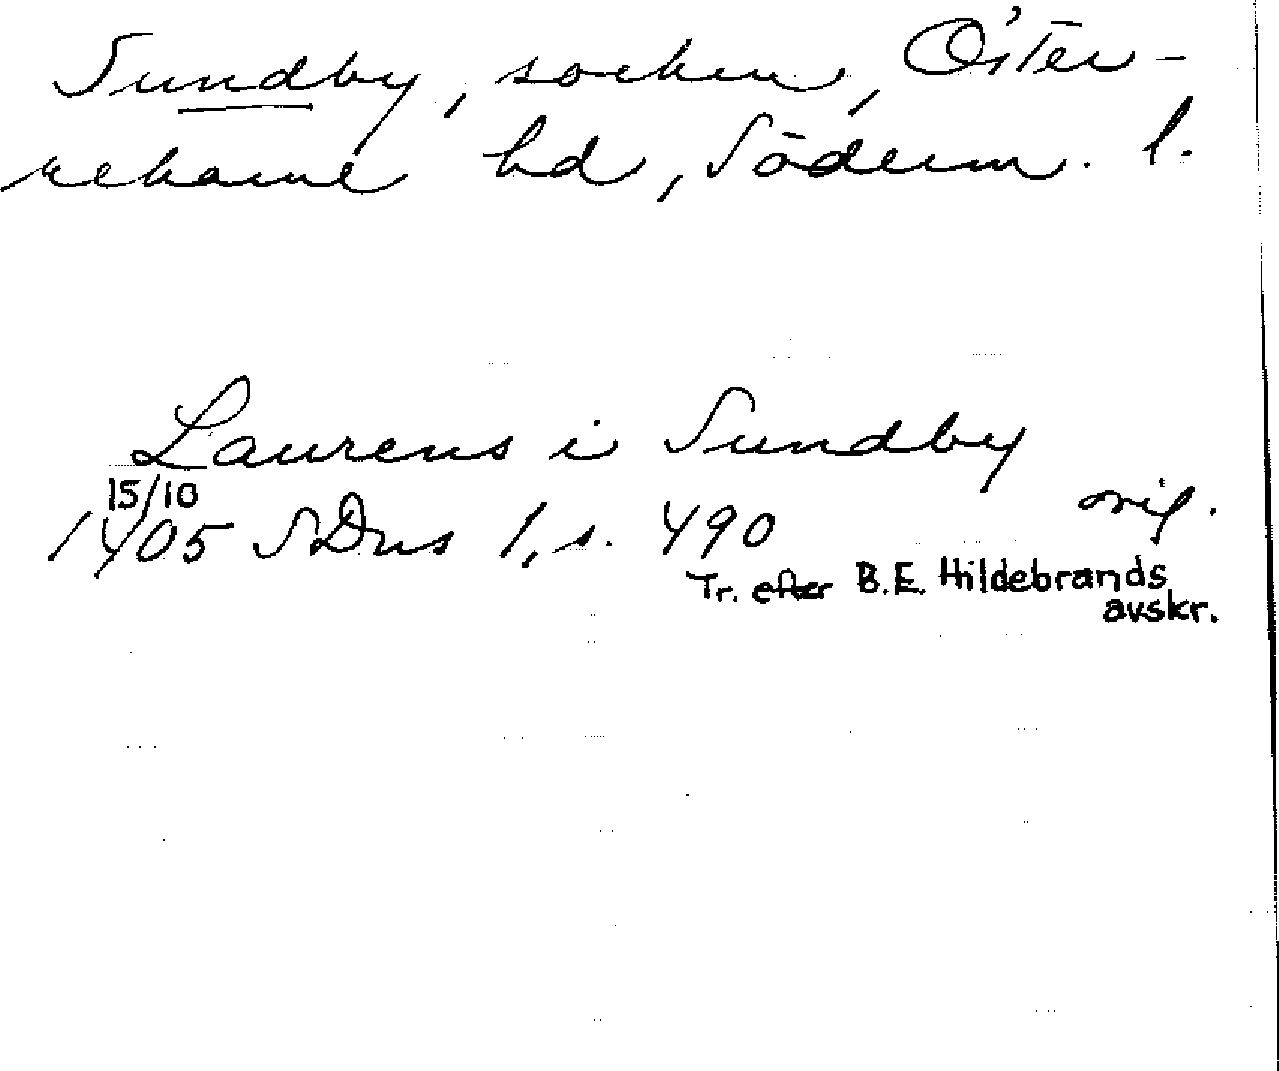 Sundby, socken, Öster-
rekarne hd, Söderm. l.
Laurens i Sundby
15/10
1405 SDns 1, s. 490 orig.
Tr. efter B.E. Hildebrands
avskr.